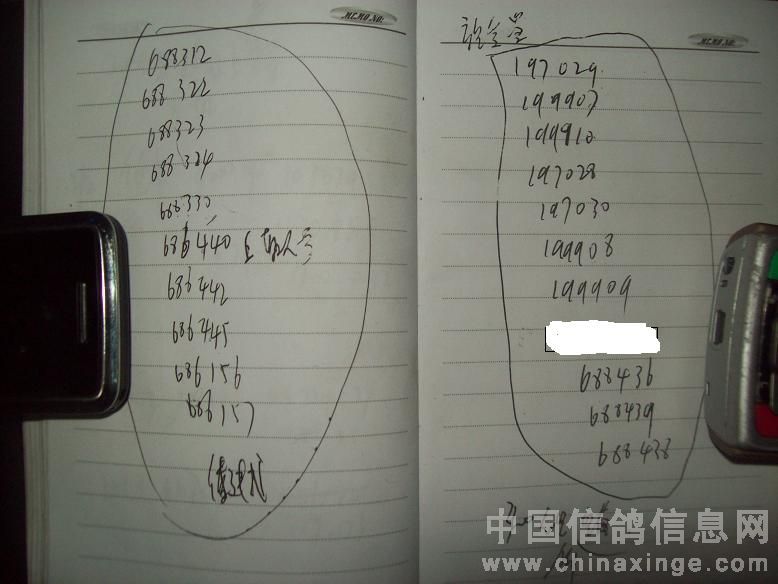 MEMO NO:
688312
688322
688323
688324
688330
686440
686442
686445
686156
686157
MEMO NO:
197029
199907
199910
197028
197030
199908
199909
688436
688439
688438
中国信鸽信息网
www.chinaxinge.com